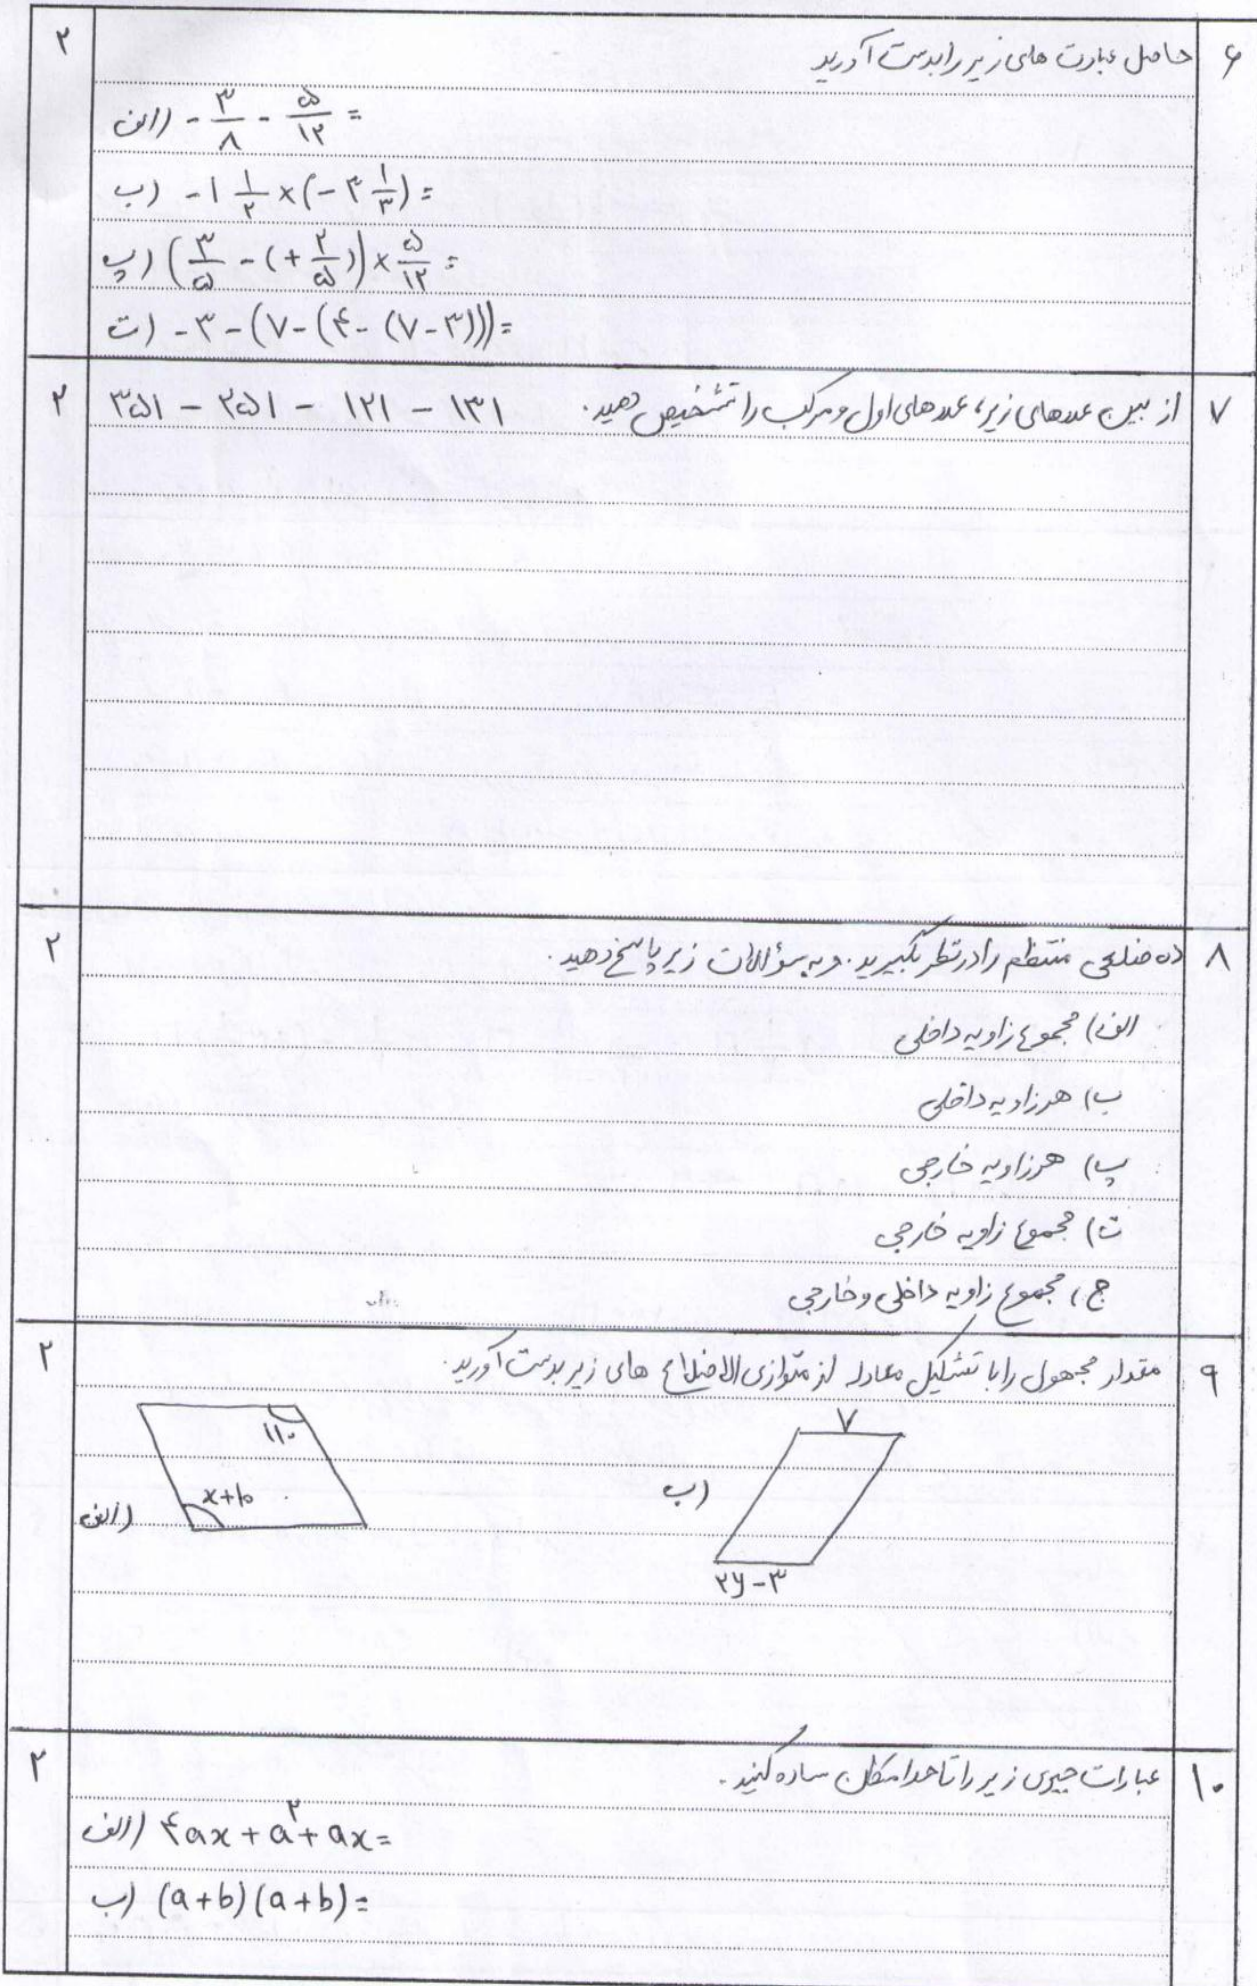 ۶ حاصل عبارت های زیر را بدست آورید ۲
الف) - ۳/۸ - ۵/۱۲ =
ب) -۱ ۱/۲ × (-۳ ۱/۳) =
پ) (۳/۵ - (+۲/۵)) × ۵/۱۲ =
ت) -۳-(۷-(۴-(۷-۳))) =
۷ از بین عددهای زیر، عددهای اول و مرکب را تشخیص دهید. ۳۵۱ - ۲۵۱ - ۱۲۱ - ۱۳۱ ۲
۸ ده ضلعی منتظم را در نظر بگیرید. و به سؤالات زیر پاسخ دهید. ۲
الف) مجموع زاویه داخلی
ب) هر زاویه داخلی
پ) هر زاویه خارجی
ت) مجموع زاویه خارجی
ج) مجموع زاویه داخلی و خارجی
۹ مقدار مجهول را با تشکیل معادله از متوازی الاضلاع های زیر بدست آورید. ۲
۱۱۰
x+۱۰
الف)
۷
ب)
۲y-۳
۱۰ عبارات جبری زیر را تا حد امکان ساده کنید. ۲
الف) ۴ax + a² + ax =
ب) (a+b)(a+b) =